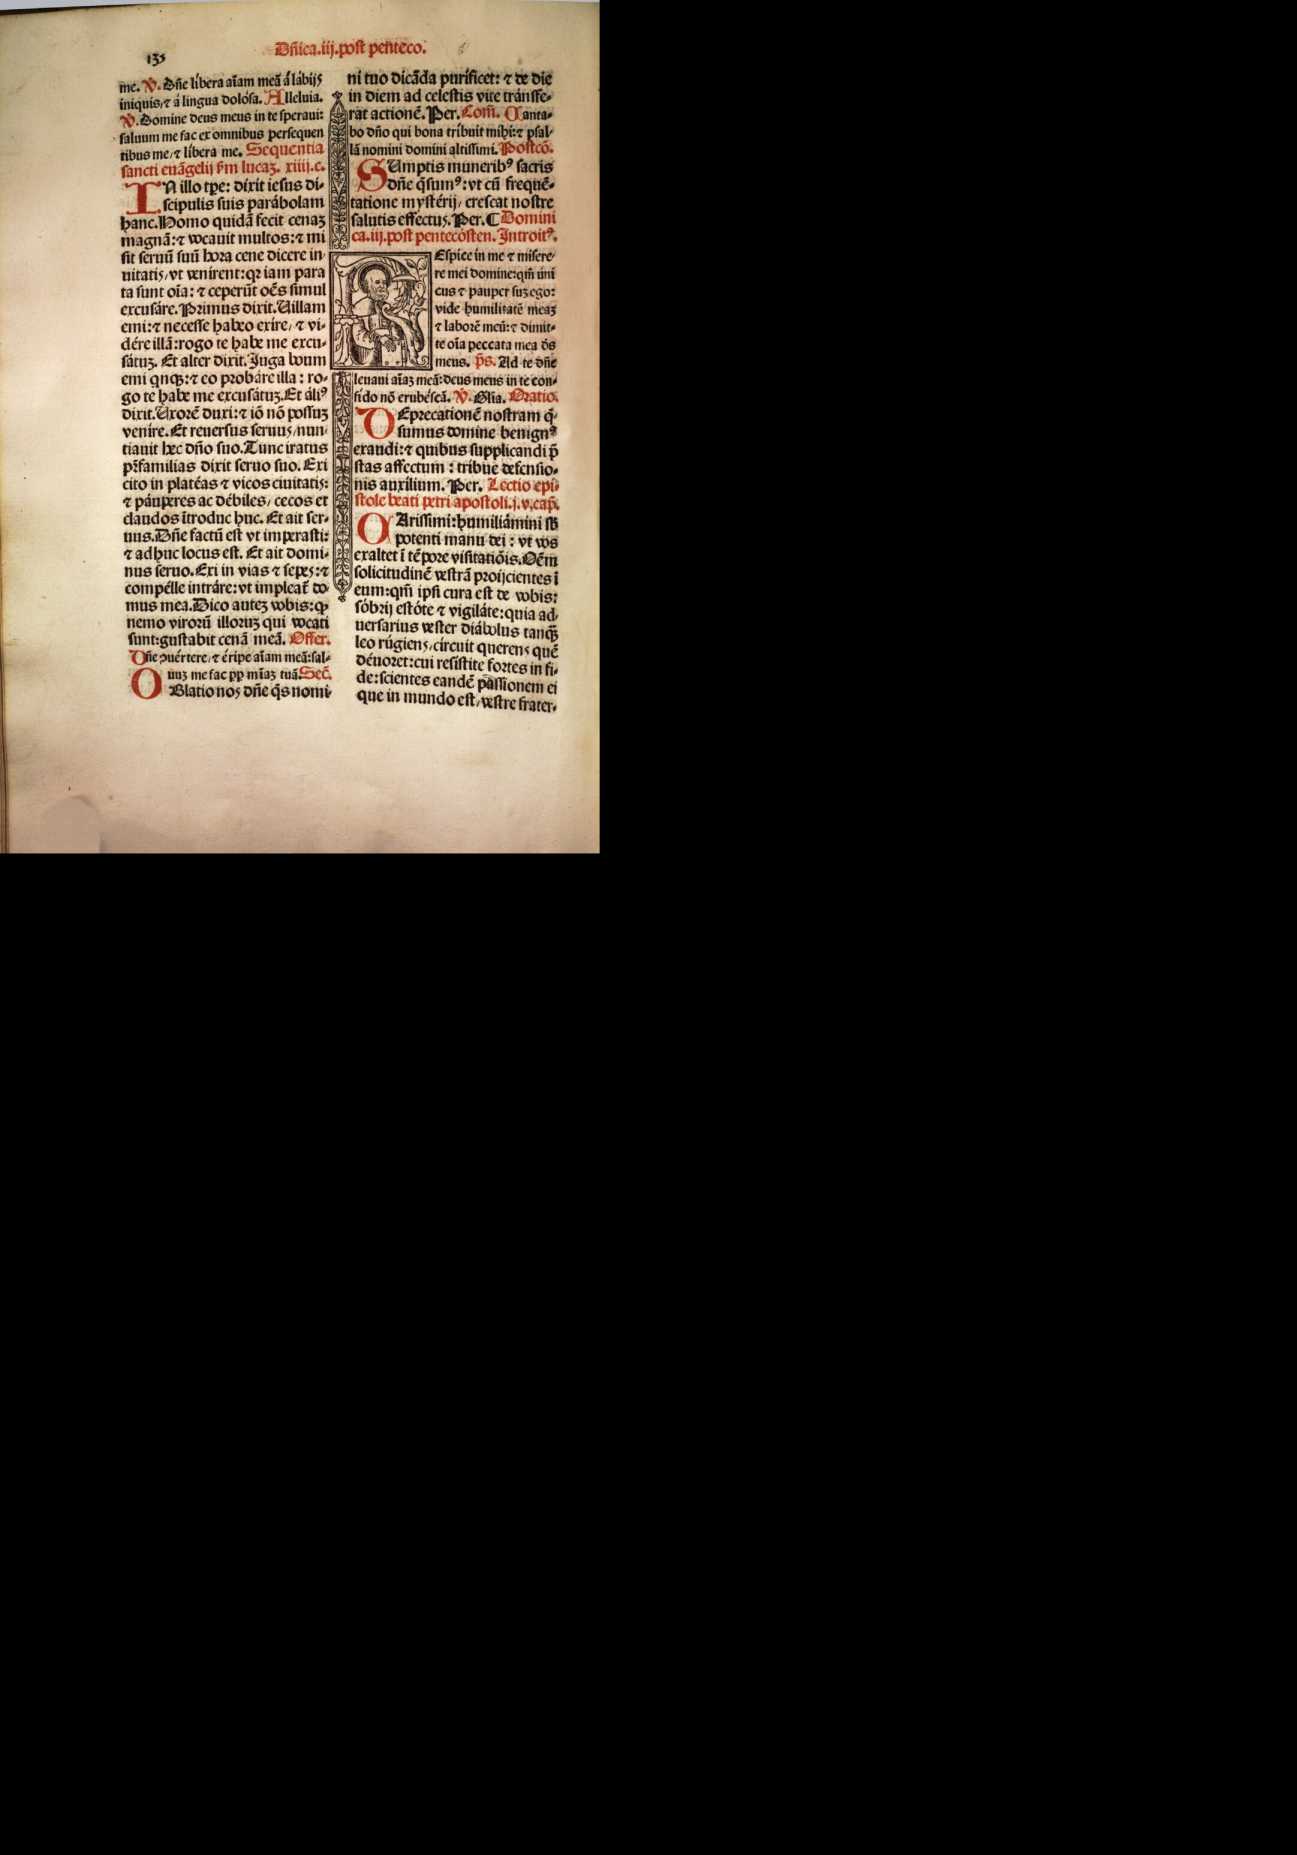 135
Dñica.iij.post penteco.
me. ℣. Dñe líbera aĩam meã á lábijs
iniquis,⁊ á lingua dolósa. Alleluia.
℣. Domine deus meus in te speraui:
saluum me fac ex omnibus persequen
tibus me,⁊ líbera me. Sequentia
sancti euãgelij ẜm lucaʒ. xiiij.c.
IN illo tꝑe: dixit iesus di-
scipulis suis parábolam
hanc. Homo quidã fecit cenaʒ
magnã:⁊ vocauit multos:⁊ mi
sit seruũ suũ hora cene dicere in
uitatis, vt venírent: qꝛ iam para
ta sunt oĩa: ⁊ ceperũt oẽs simul
excusáre. Primus dixit. Uillam
emi:⁊ necesse habeo exíre, ⁊ vi-
dére illã: rogo te habe me excu-
sátuʒ. Et alter dixit. Juga boum
emi qnqʒ:⁊ eo probáre illa : ro-
go te habe me excusátuʒ. Et áliꝰ
dixit. Uxorẽ duxi:⁊ iõ nõ possuʒ
veníre. Et reuersus seruus, nun-
tiauit hec dño suo. Tunc iratus
pr̃familias dixit seruo suo. Exi
cito in platéas ⁊ vicos ciuitatis:
⁊ páuperes ac débiles, cecos et
claudos ĩtroduc huc. Et ait ser-
uus. Dñe factũ est vt imperasti:
⁊ adhuc locus est. Et ait domi-
nus seruo. Exi in vias ⁊ sepes:⁊
compélle intráre: vt impleat̃ do-
mus mea. Dico auteʒ vobis: ꝙ
nemo virorũ illoruʒ qui vocati
sunt: gustabit cenã meã. Offer.
Dñe ꝯuértere,⁊ éripe aĩam meã: sal-
uuʒ me fac ꝓp mĩaʒ tuã. Sec̃.
OBlatio nos dñe q̃s nomi-
ni tuo dicãda puríficet: ⁊ de die
in diem ad celestis vite tránsfe-
rat actionẽ. Per. Com̃. Canta-
bo dño qui bona tríbuit mihi:⁊ psal-
lã nomini domini altissimi. Postcõ.
SUmptis muneribꝰ sacris
dñe q̃sumꝰ: vt cũ frequẽ-
tatione mystérij, crescat nostre
salutis effectus. Per. ¶ Domini
ca.iij.post pentecósten. Introitꝰ.
REspice in me ⁊ misere-
re mei domine: qm̃ úni
cus ⁊ pauper suʒ ego:
vide humilitatẽ meaʒ
⁊ laborẽ meũ:⁊ dimit-
te oĩa peccata mea ds̃
meus. p̃s. Ad te dñe
leuaui aĩaʒ meã: deus meus in te con-
fido nõ erubéscã. ℣. Glia. Oratio.
DEprecationẽ nostram q̃-
sumus domine benignꝰ
exaudi:⁊ quibus supplicandi p̃
stas affectum : tribue defensio-
nis auxilium. Per. Lectio epi-
stole beati petri apostoli.j.v.cap̃.
CArissimi: humiliámini sb̃
potenti manu dei : vt vos
exaltet ĩ tẽpore visitatiõis. Oẽm
solicitudinẽ vestrã proijcientes ĩ
eum: qm̃ ipsi cura est de vobis:
sóbrij estóte ⁊ vigiláte: quia ad-
uersarius vester diábolus tanqʒ
leo rúgiens, círcuit querens quẽ
déuoret: cui resistite fortes in fi-
de: scientes eandẽ passionem ei
que in mundo est, vestre frater-